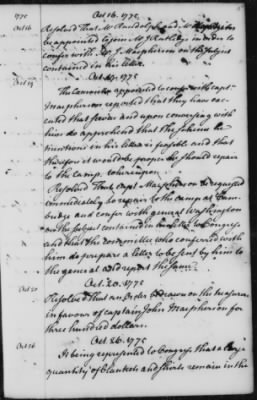 1775 Oct. 16. 1775
Oct 16 Resolved That Mr Randolph and Mr
be appointed to join Mr J. Rutledge in order to
confer with Mr J. Macpherson on the subject
contained in his letter.
Oct. 19. 1775
Oct 19 The Committee appointed to confer with capt
Macpherson reported that they have exe-
cuted that service and upon conversing with
him do apprehend that the scheme he
mentions in his letter is feasible and that
therefore it would be proper he should repair
to the camp,
Resolved That Capt Macpherson be requested
immediately to repair to the camp at Cam-
bridge and confer with general Washington
on the subject contained in his letter to Congress
and that the committee who conferred with
him do prepare a letter to be sent by him to
the general and report the same.
Oct. 20. 1775
Oct 20 Resolved That an Order be drawn on the treasurers
in favour of captain John Macpherson for
three hundred dollars.
Oct 26. 1775
Oct 26 It being represented to Congress that a large
quantity of blankets and shirts remain in the